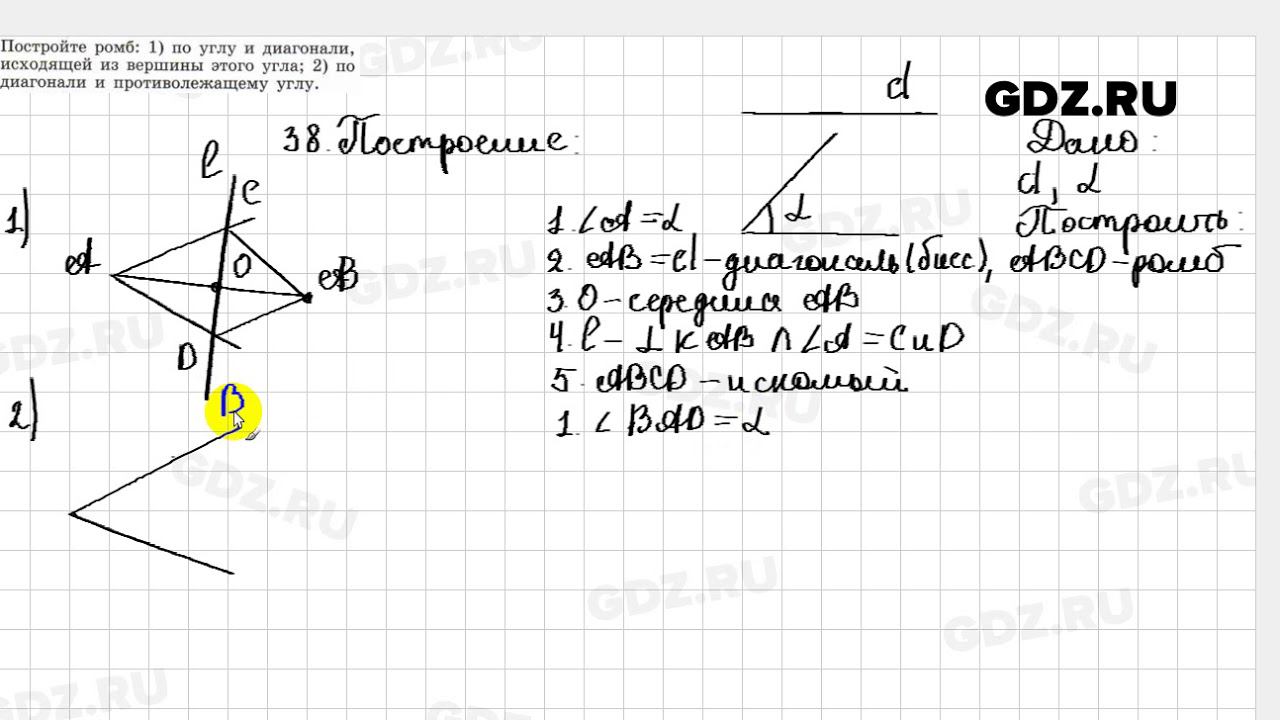 Постройте ромб: 1) по углу и диагонали,
исходящей из вершины этого угла; 2) по
диагонали и противолежащему углу.
GDZ.RU
d
38. Построение:
Дано:
d, α
α
Построить:
ABCD - ромб
1)
ℓ
C
A
O
B
D
1. ∠A = α
2. AB = d - диагональ (бисс),
3. O - середина AB
4. ℓ - ⊥ к AB ∩ ∠A = C и D
5. ABCD - искомый
2)
B
1. ∠BAD = α
GDZ.RU
GDZ.RU
GDZ.RU
GDZ.RU
GDZ.RU
GDZ.RU
GDZ.RU
GDZ.RU
GDZ.RU
GDZ.RU
GDZ.RU
GDZ.RU